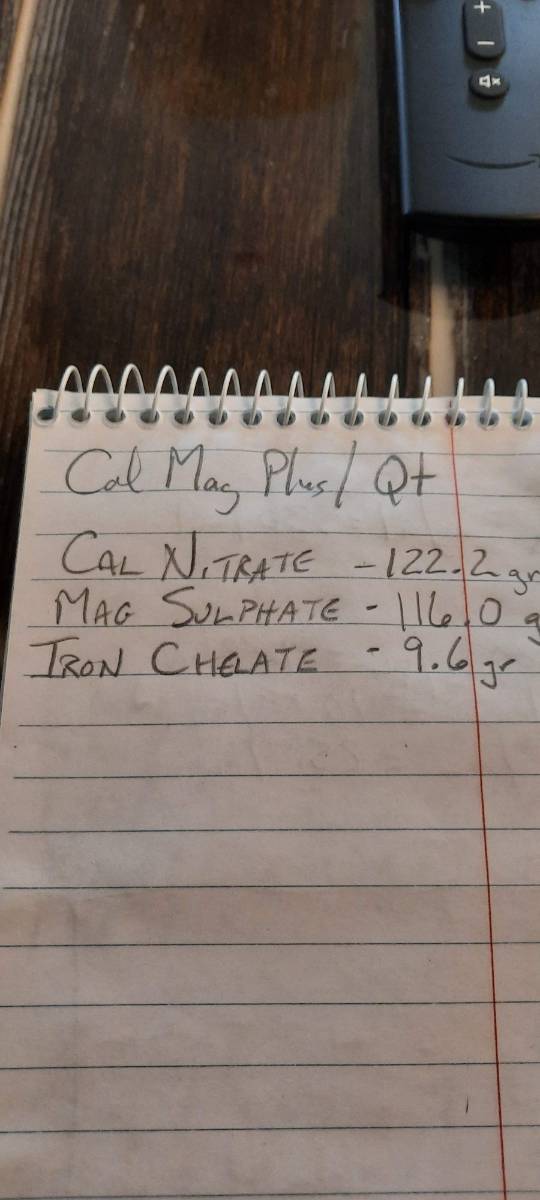 +
-
Cal Mag Plus/ Qt
CAL NITRATE - 122.2 gr
MAG SULPHATE - 116.0 g
IRON CHELATE - 9.6 gr